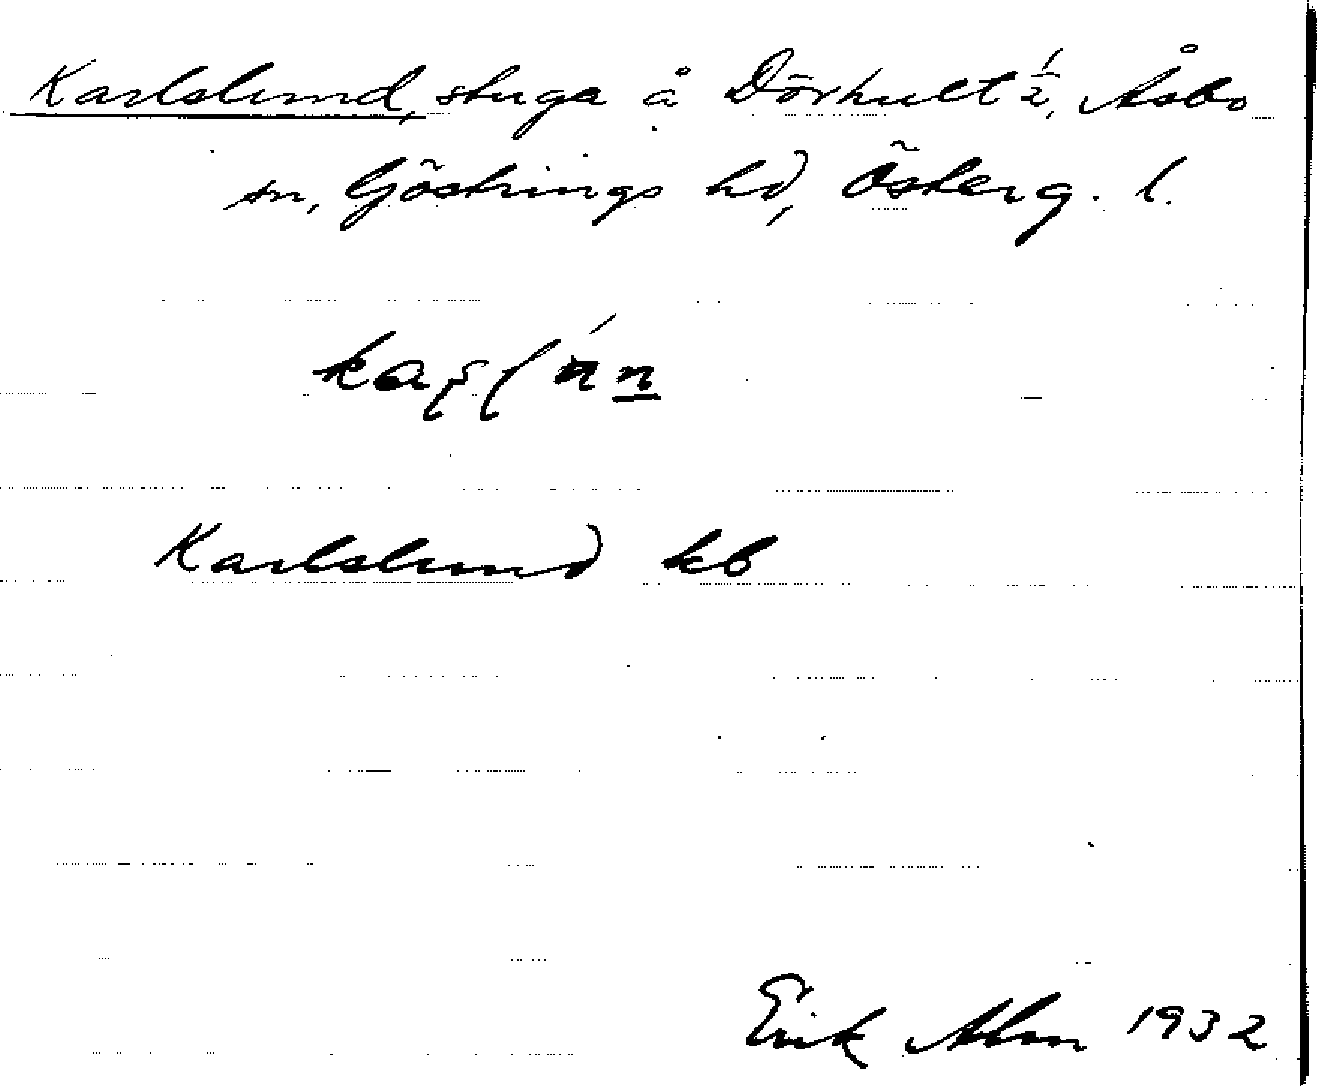 Karlslund, stuga å Dörhult ½, Åsbo
sn, Göstrings hd, Österg. l.
Karlslund kb
Erik Alm 1932